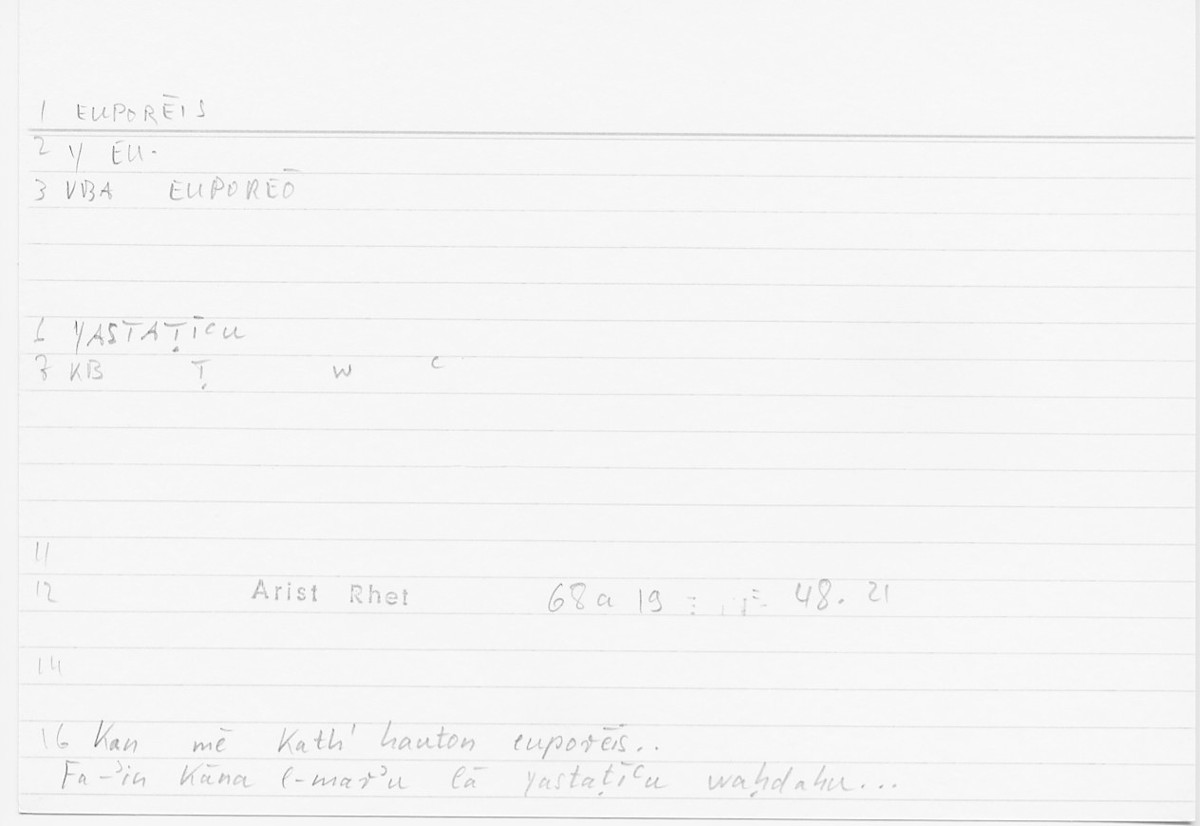 1 EUPORĒIS
2 y EU-
3 VBA EUPOREŌ
6 YASTAṬĪcU
7 KB Ṭ w c
11
12 Arist Rhet 68a 19 48. 21
14
16 Kan mē kath' hauton euporēis..
Fa-ʾin kāna l-marʾu lā yastaṭīcu waḥdahu...